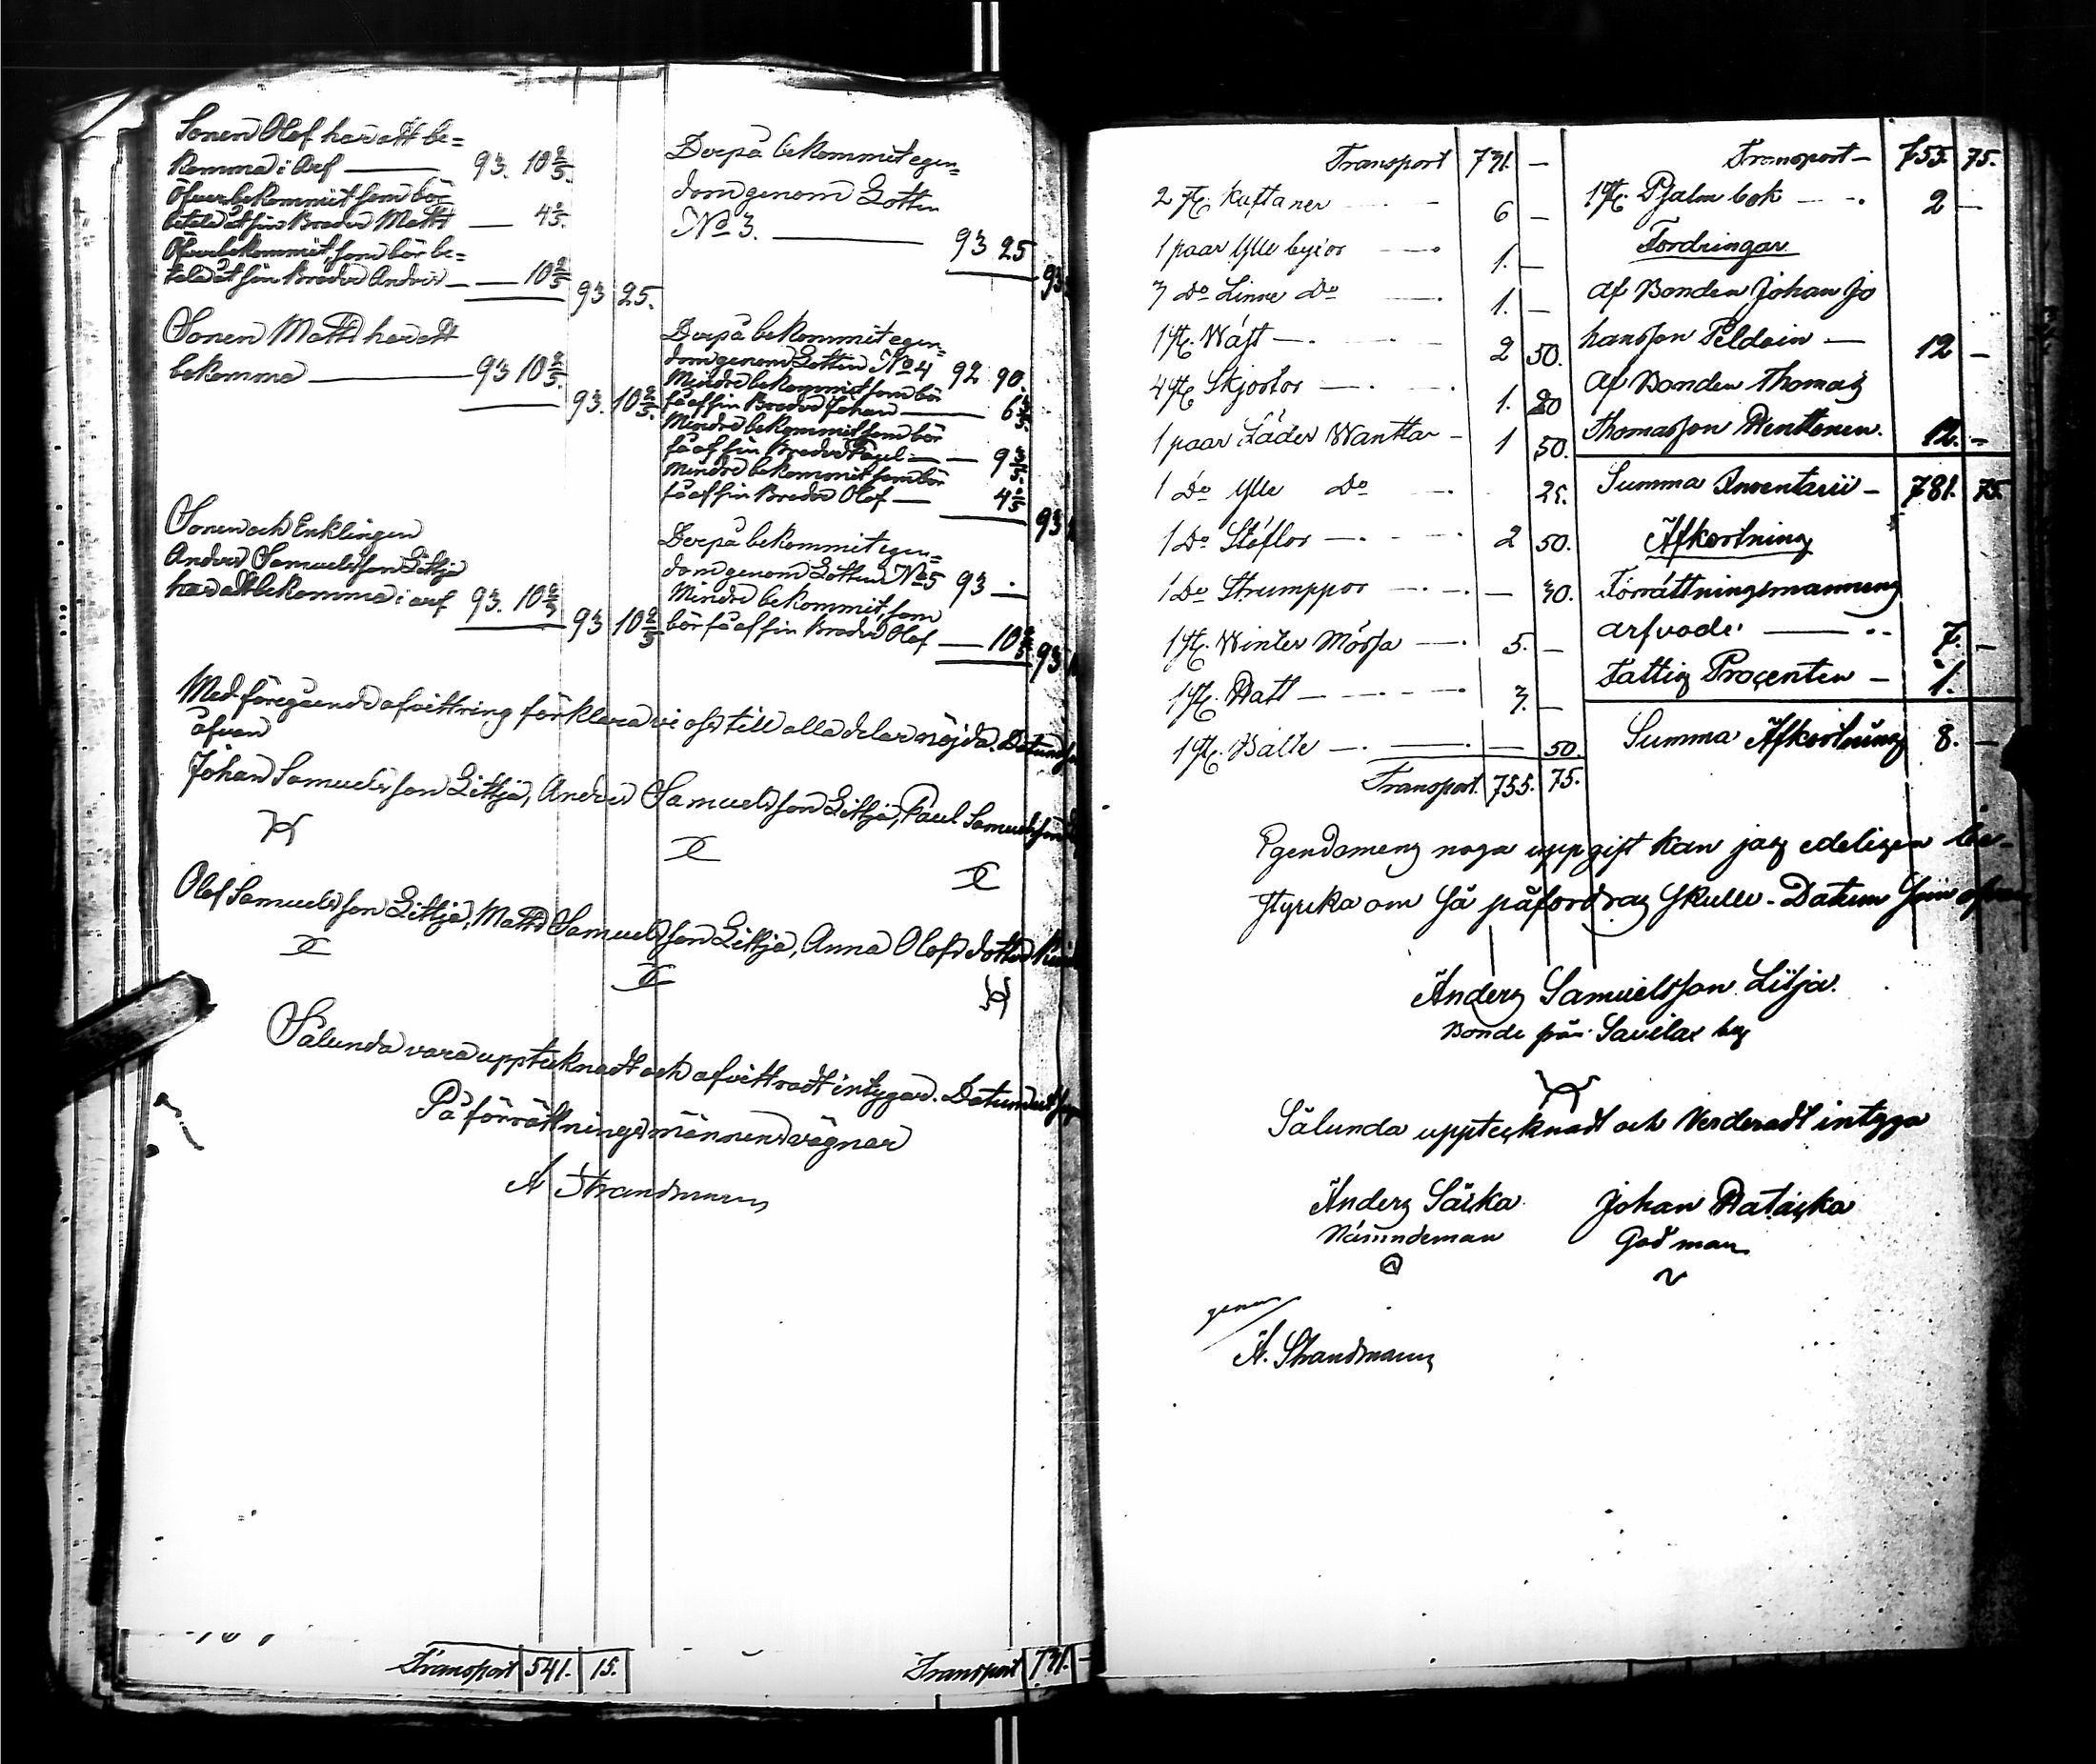 Sonen Olof har att be=
komma i Arf — 93. 10 2/5.
Öfverbekommit som bör
betala åt sin Broder Matts — 4 1/5.
Öfverbekommit, som bör be=
tala åt sin Broder Anders — 10 2/5
93 25.
Sonen Matts har att
bekomma — 93 10 2/5.
93. 10 2/5.
Sonen och Enklingen
Anders Samuelsson Lillja
har att bekomma i arf 93. 10 2/5
93 10 2/5
Derpå bekommit egen=
dom genom Lotten
No 3. — 93 25
Derpå bekommit egen=
dom genom Lotten No 4 92 90.
Mindre bekommit som bör
få af sin Broder Johan — 6 2/5.
Mindre bekommit som bör
få af sin Broder Paul — 9 3/5.
Mindre bekommit som bör
få af sin Broder Olof — 4 1/5
93
Derpå bekommit egen=
dom genom Lotten No 5 93 —
Mindre bekommit, som
bör få af sin Broder Olof — 10 2/5
93
Med föregående afvittring förklara vi oss till alla delar nöjda. Datum
ofvan
Johan Samuelsson Lillja, Anders Samuelsson Lillja, Paul Samuelsson
Olof Samuelsson Lillja, Matts Samuelsson Lillja, Anna Olofsdotter
Sålunda vara upptecknadt och afvittradt intygar. Datum ut
På förrättningsmännens vägnar
A Strandmann
Transport 541. 15.
Transport 731. —
Transport 731. —
2 st. Kaftaner — 6 —
1 paar Ylle byxor — 1. —
3 Do Linne Do — 1. —
1 st. Wäst — 2 50.
4 st. Skjortor — 1. 20
1 paar Läder Wanttar — 1 50.
1 Do Ylle Do — 25.
1 Do Stöflor — 2 50.
1 Do Strumppor — 30.
1 st. Winter Mössa — 5. —
1 st. Hatt — 3. —
1 st. Bälte — 50.
Transport. 755. 75.
Transport — 755. 75.
1 st. Psalm bok — 2 —
Fordringar
af Bonden Johan Jo
hansson Peldoin — 12 —
Af Bonden Thomas
Thomasson Henttonen. 12. —
Summa Inventarii — 781. 75
Afkortning
Förrättningsmannens
arfvode — 7. —
Fattig Procenten — 1.
Summa Afkortning 8. —
Egendomens noga uppgift kan jag edeligen be-
styrka om så påfordras skulle. Datum som ofvan
Anders Samuelsson Lilja.
Bonde från Savilax by
Sålunda upptecknadt och Verderadt intyga
Anders Särka Johan Hatacka
Nämndeman God man
genom
A. Strandmann